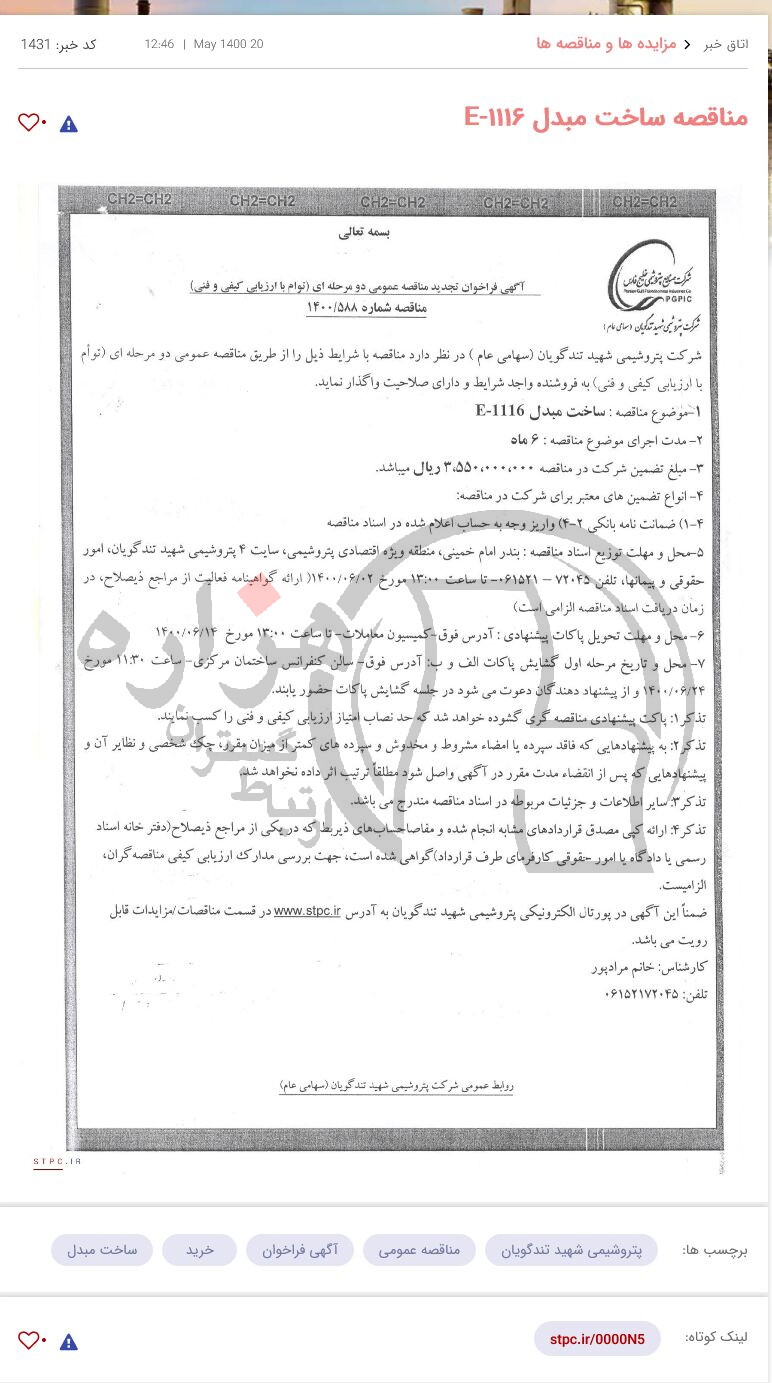 اتاق خبر › مزایده ها و مناقصه ها
20 May 1400 | 12:46
کد خبر: 1431
مناقصه ساخت مبدل E-۱۱۱۶
CH2=CH2 CH2=CH2 CH2=CH2 CH2=CH2 CH2=CH2
بسمه تعالی
شرکت صنایع پتروشیمی خلیج فارس
Persian Gulf Petrochemical Industries Co
PGPIC
شرکت پتروشیمی شهید تندگویان (سهامی عام)
آگهی فراخوان تجدید مناقصه عمومی دو مرحله ای (توام با ارزیابی کیفی و فنی)
مناقصه شماره ۱۴۰۰/۵۸۸
شرکت پتروشیمی شهید تندگویان (سهامی عام ) در نظر دارد مناقصه با شرایط ذیل را از طریق مناقصه عمومی دو مرحله ای (توأم
با ارزیابی کیفی و فنی) به فروشنده واجد شرایط و دارای صلاحیت واگذار نماید.
۱-موضوع مناقصه : ساخت مبدل E-1116
۲- مدت اجرای موضوع مناقصه : ۶ ماه
۳- مبلغ تضمین شرکت در مناقصه ۳،۵۵۰،۰۰۰،۰۰۰ ریال میباشد.
۴- انواع تضمین های معتبر برای شرکت در مناقصه:
۴-۱) ضمانت نامه بانکی ۲-۴) واریز وجه به حساب اعلام شده در اسناد مناقصه
۵-محل و مهلت توزیع اسناد مناقصه : بندر امام خمینی، منطقه ویژه اقتصادی پتروشیمی، سایت ۴ پتروشیمی شهید تندگویان، امور
حقوقی و پیمانها، تلفن ۷۲۰۴۵ – ۰۶۱۵۲۱- تا ساعت ۱۳:۰۰ مورخ ۱۴۰۰/۰۶/۰۲( ارائه گواهینامه فعالیت از مراجع ذیصلاح، در
زمان دریافت اسناد مناقصه الزامی است)
۶- محل و مهلت تحویل پاکات پیشنهادی : آدرس فوق-کمیسیون معاملات- تا ساعت ۱۳:۰۰ مورخ ۱۴۰۰/۰۶/۱۴
۷- محل و تاریخ مرحله اول گشایش پاکات الف و ب: آدرس فوق- سالن کنفرانس ساختمان مرکزی- ساعت ۱۱:۳۰ مورخ
۱۴۰۰/۰۶/۲۴ و از پیشنهاد دهندگان دعوت می شود در جلسه گشایش پاکات حضور یابند.
تذکر۱: پاکت پیشنهادی مناقصه گری گشوده خواهد شد که حد نصاب امتیاز ارزیابی کیفی و فنی را کسب نمایند.
تذکر۲: به پیشنهادهایی که فاقد سپرده یا امضاء مشروط و مخدوش و سپرده های کمتر از میزان مقرر، چک شخصی و نظایر آن و
پیشنهادهایی که پس از انقضاء مدت مقرر در آگهی واصل شود مطلقاً ترتیب اثر داده نخواهد شد.
تذکر۳: سایر اطلاعات و جزئیات مربوطه در اسناد مناقصه مندرج می باشد.
تذکر۴: ارائه کپی مصدق قراردادهای مشابه انجام شده و مفاصاحساب‌های ذیربط که در یکی از مراجع ذیصلاح(دفتر خانه اسناد
رسمی یا دادگاه یا امور حقوقی کارفرمای طرف قرارداد)گواهی شده است، جهت بررسی مدارک ارزیابی کیفی مناقصه گران،
الزامیست.
ضمناً این آگهی در پورتال الکترونیکی پتروشیمی شهید تندگویان به آدرس www.stpc.ir در قسمت مناقصات/مزایدات قابل
رویت می باشد.
کارشناس: خانم مرادپور
تلفن: ۰۶۱۵۲۱۷۲۰۴۵
روابط عمومی شرکت پتروشیمی شهید تندگویان (سهامی عام)
هزاره
گستران
ارتباط
STPC.IR
برچسب ها: پتروشیمی شهید تندگویان مناقصه عمومی آگهی فراخوان خرید ساخت مبدل
لینک کوتاه: stpc.ir/0000N5